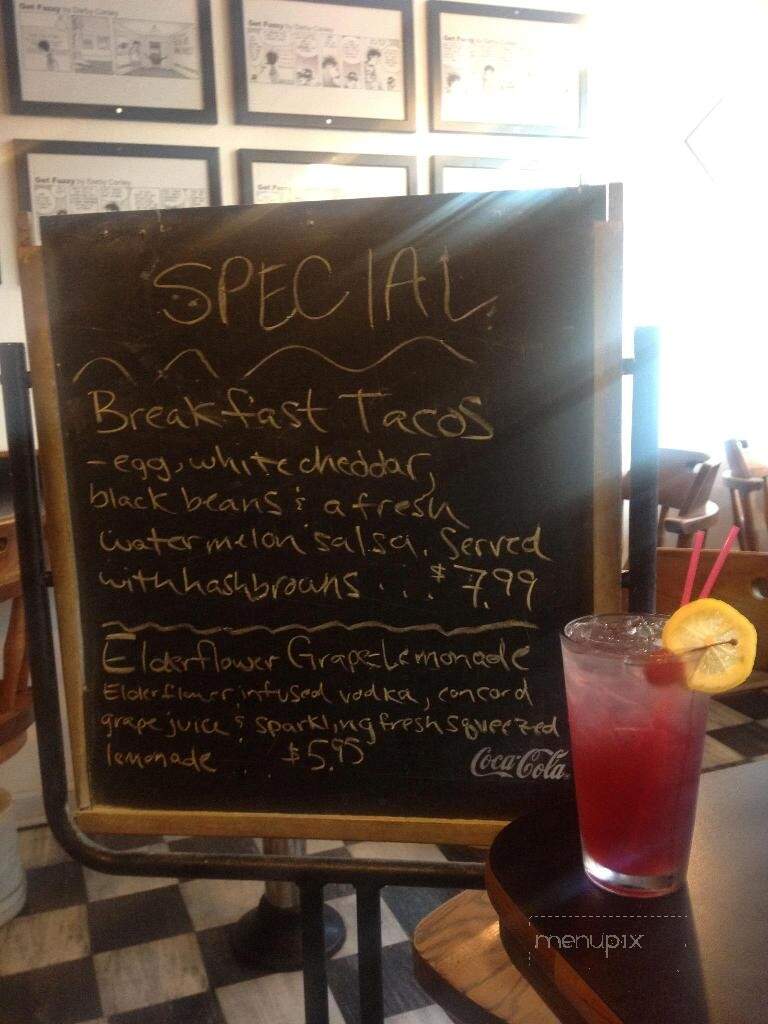 Get Fuzzy by Darby Conley
Get Fuzzy by Darby Conley
Get Fuzzy by Darby Conley
Get Fuzzy by Darby Conley
Get Fuzzy
SPECIAL
Breakfast Tacos
-egg, white cheddar,
black beans & a fresh
watermelon salsa. Served
with hashbrowns ... $7.99
Elderflower Grape-Lemonade
Elderflower infused vodka, concord
grape juice & sparkling fresh squeezed
lemonade .. $5.95
Coca-Cola
menupix